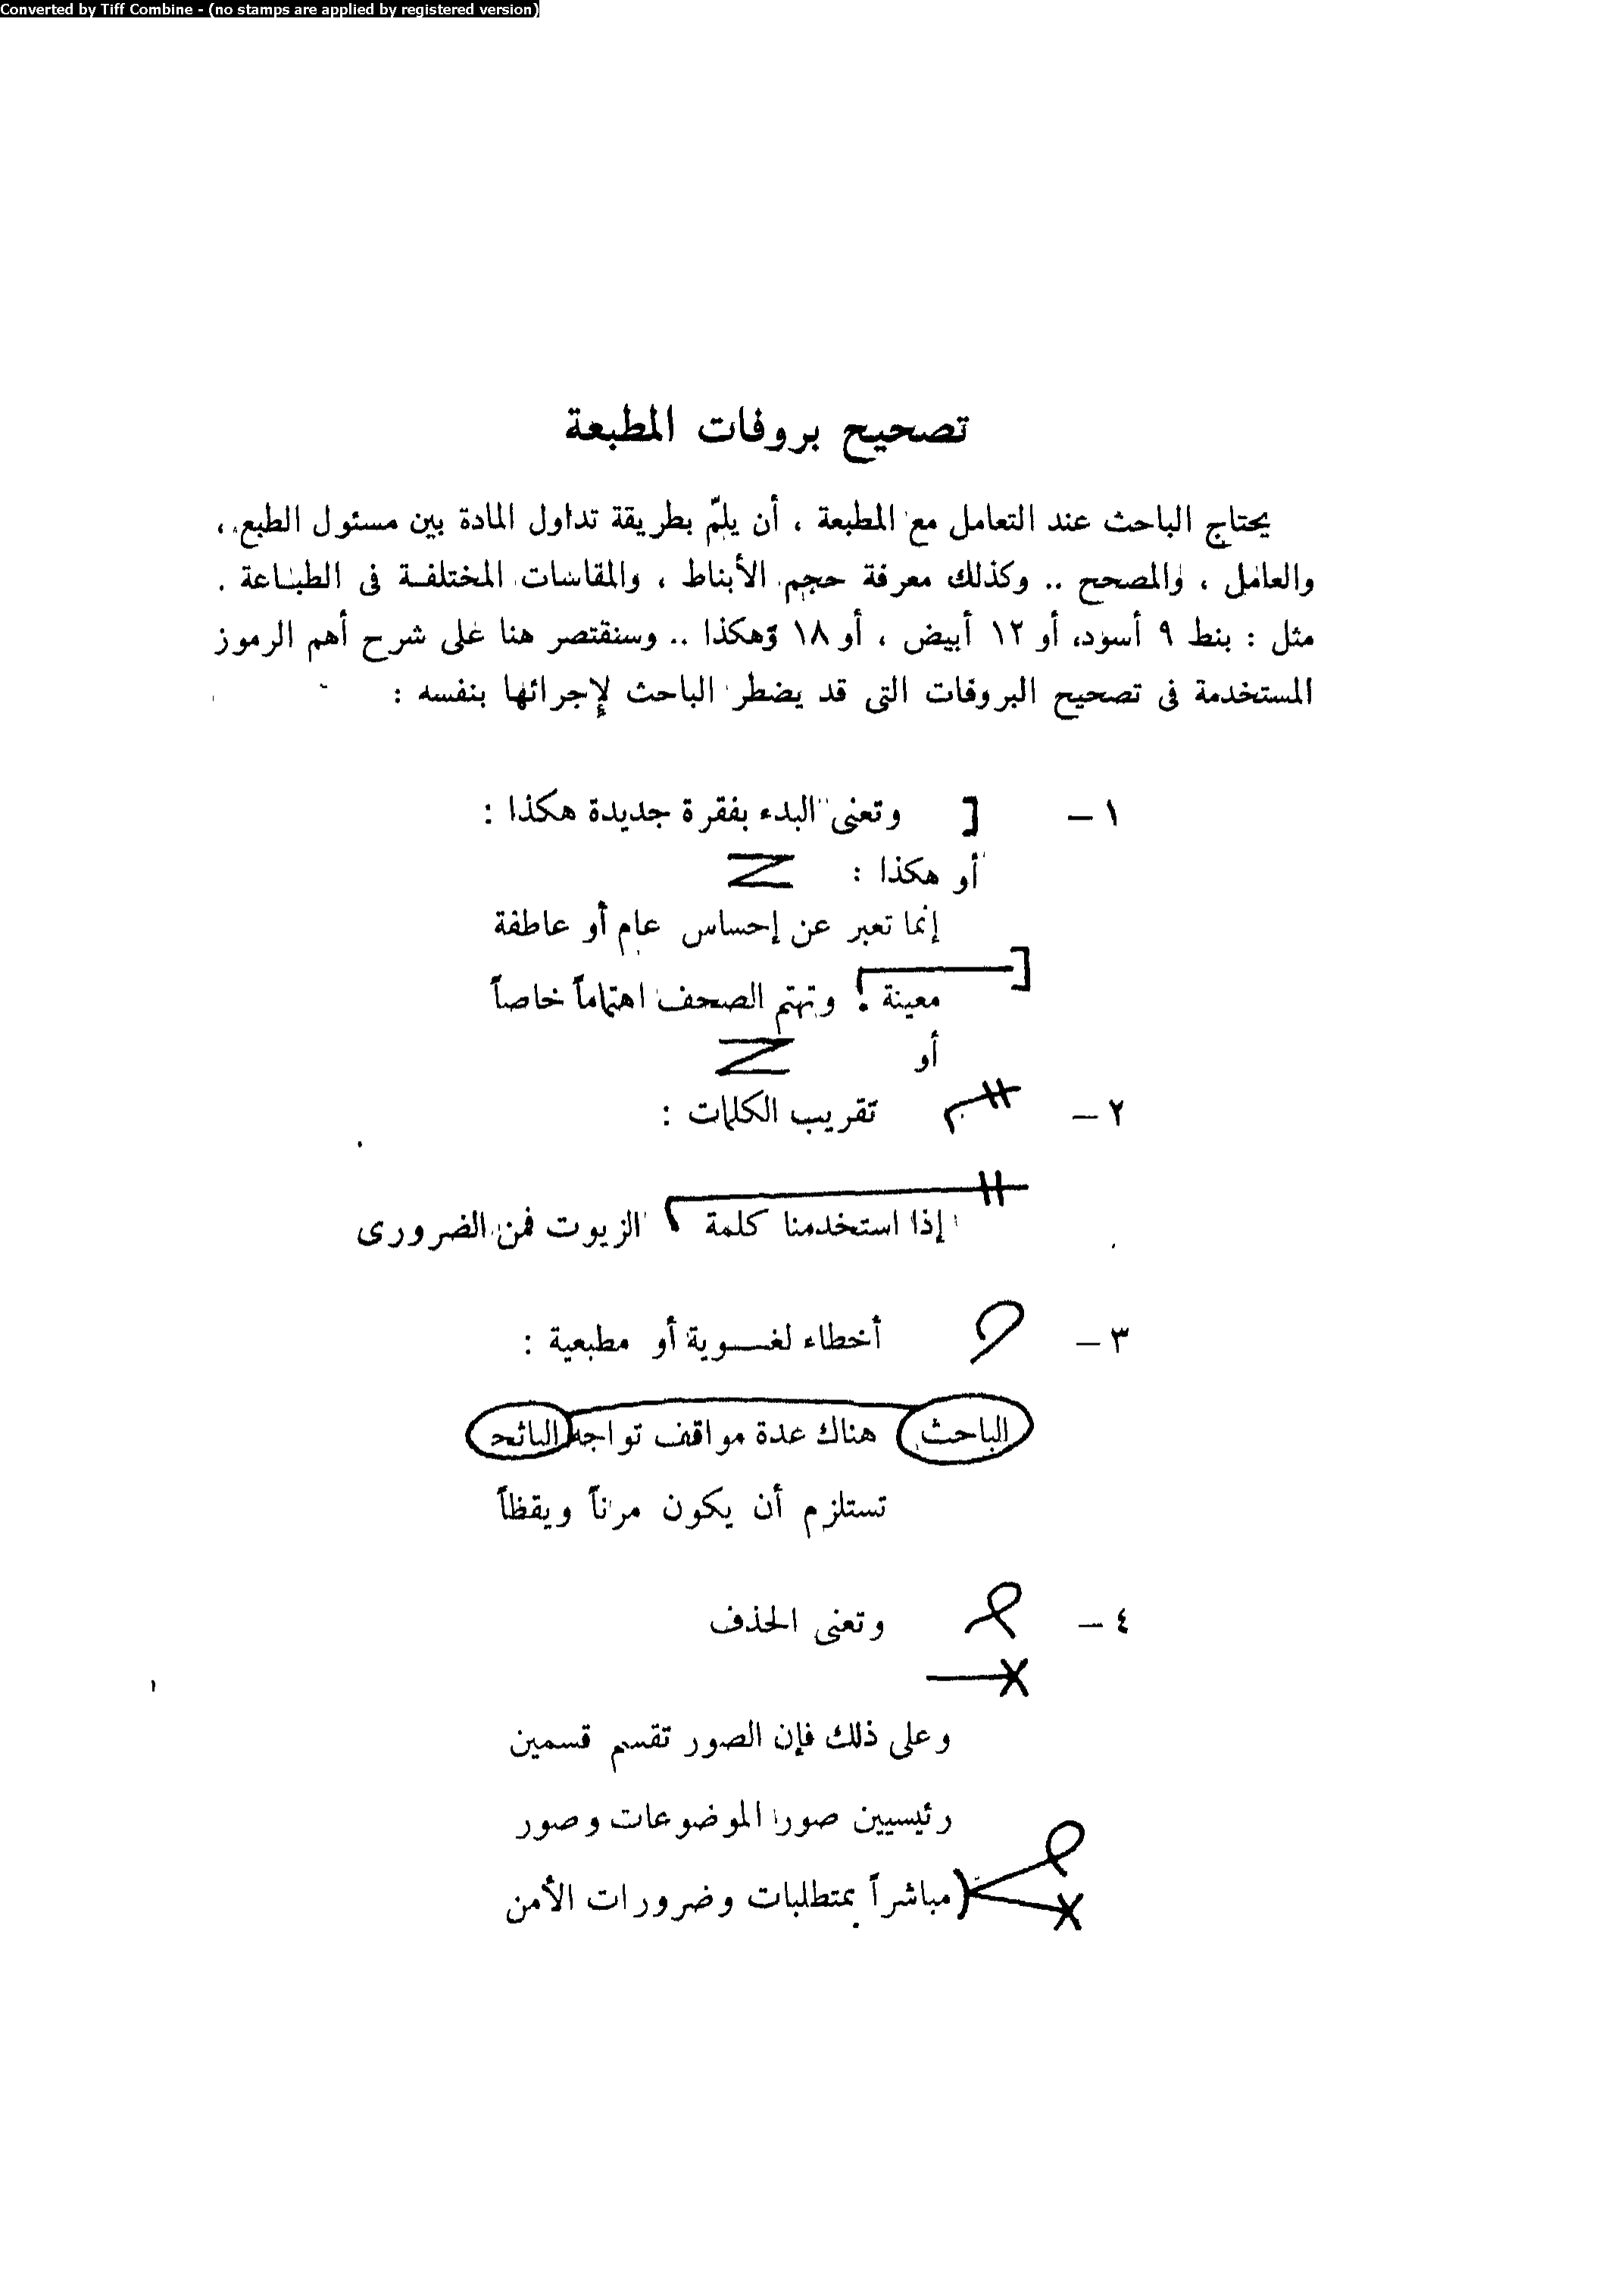 Converted by Tiff Combine - (no stamps are applied by registered version)
تصحيح بروفات المطبعة
يحتاج الباحث عند التعامل مع المطبعة ، أن يلمّ بطريقة تداول المادة بين مسئول الطبع ،
والعامل ، والمصحح .. وكذلك معرفة حجم الأبناط ، والمقاسات المختلفة فى الطباعة .
مثل : بنط ٩ أسود، أو ١٢ أبيض ، أو ١٨ وهكذا .. وسنقتصر هنا على شرح أهم الرموز
المستخدمة فى تصحيح البروفات التى قد يضطر الباحث لإجرائها بنفسه :
١ – [ وتعنى البدء بفقرة جديدة هكذا :
أو هكذا :
إنما تعبر عن إحساس عام أو عاطفة
معينة . وتهتم الصحف اهتماماً خاصاً
أو
٢ – تقريب الكلمات :
إذا استخدمنا كلمة الزيوت فمن الضرورى
٣ – أخطاء لغـوية أو مطبعية :
الباحث هناك عدة مواقف تواجه البائحد
تستلزم أن يكون مرناً ويقظاً
٤ – وتعنى الحذف
وعلى ذلك فإن الصور تقسم قسمين
رئيسيين صور الموضوعات وصور
مباشراً بمتطلبات وضرورات الأمن